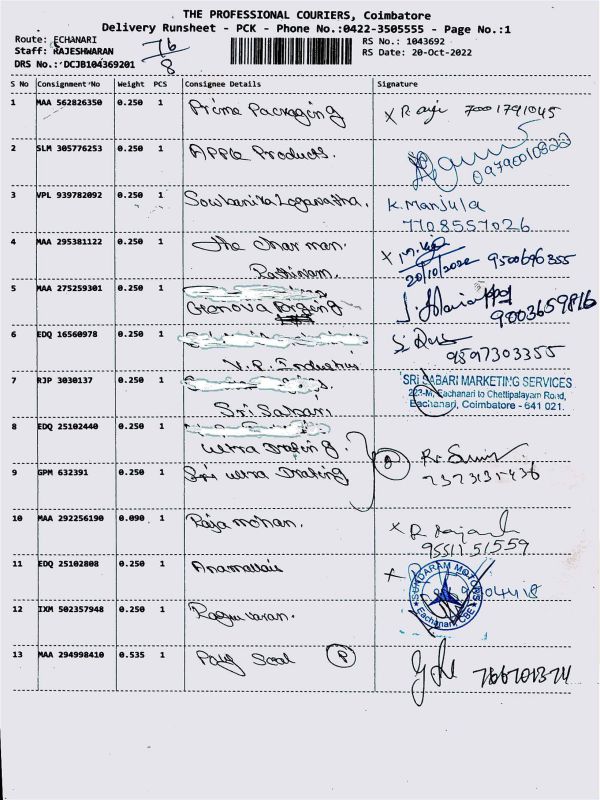 THE PROFESSIONAL COURIERS, Coimbatore
Delivery Runsheet - PCK - Phone No.:0422-3505555 - Page No.:1
Route: ECHANARI
Staff: RAJESHWARAN
DRS No.: DCJB104369201
76
8
RS No.: 1043692
RS Date: 20-Oct-2022
S No Consignment No Weight PCS Consignee Details Signature
1 MAA 562826350 0.250 1 Prime Packaging 7001791045
2 SLM 305776253 0.250 1 Apple Products. 09790010822
3 VPL 939782092 0.250 1 Sowbanika Loganatha. K. Manjula
7708557026
4 MAA 295381122 0.250 1 The Chairman.
Rathinam. 20/10/2022 9500696355
5 MAA 275259301 0.250 1
9003659816
6 EDQ 16560978 0.250 1
V.P. Industries 9597303355
7 RJP 3030137 0.250 1
Sri Sabari
SRI SABARI MARKETING SERVICES
223-M, Eachanari to Chettipalayam Road,
Eachanari, Coimbatore - 641 021.
8 EDQ 25102440 0.250 1
Ultra Dialing.
9 GPM 632391 0.250 1 Sri Ultra Dialing
7373135436
10 MAA 292256190 0.090 1 Raja mohan.
9551151559
11 EDQ 25102808 0.250 1 Anamallais
SUNDARAM MOTORS
Eachanari, CBE
12 IXM 502357948 0.250 1 Raguvaran.
13 MAA 294998410 0.535 1 Poly Seal P